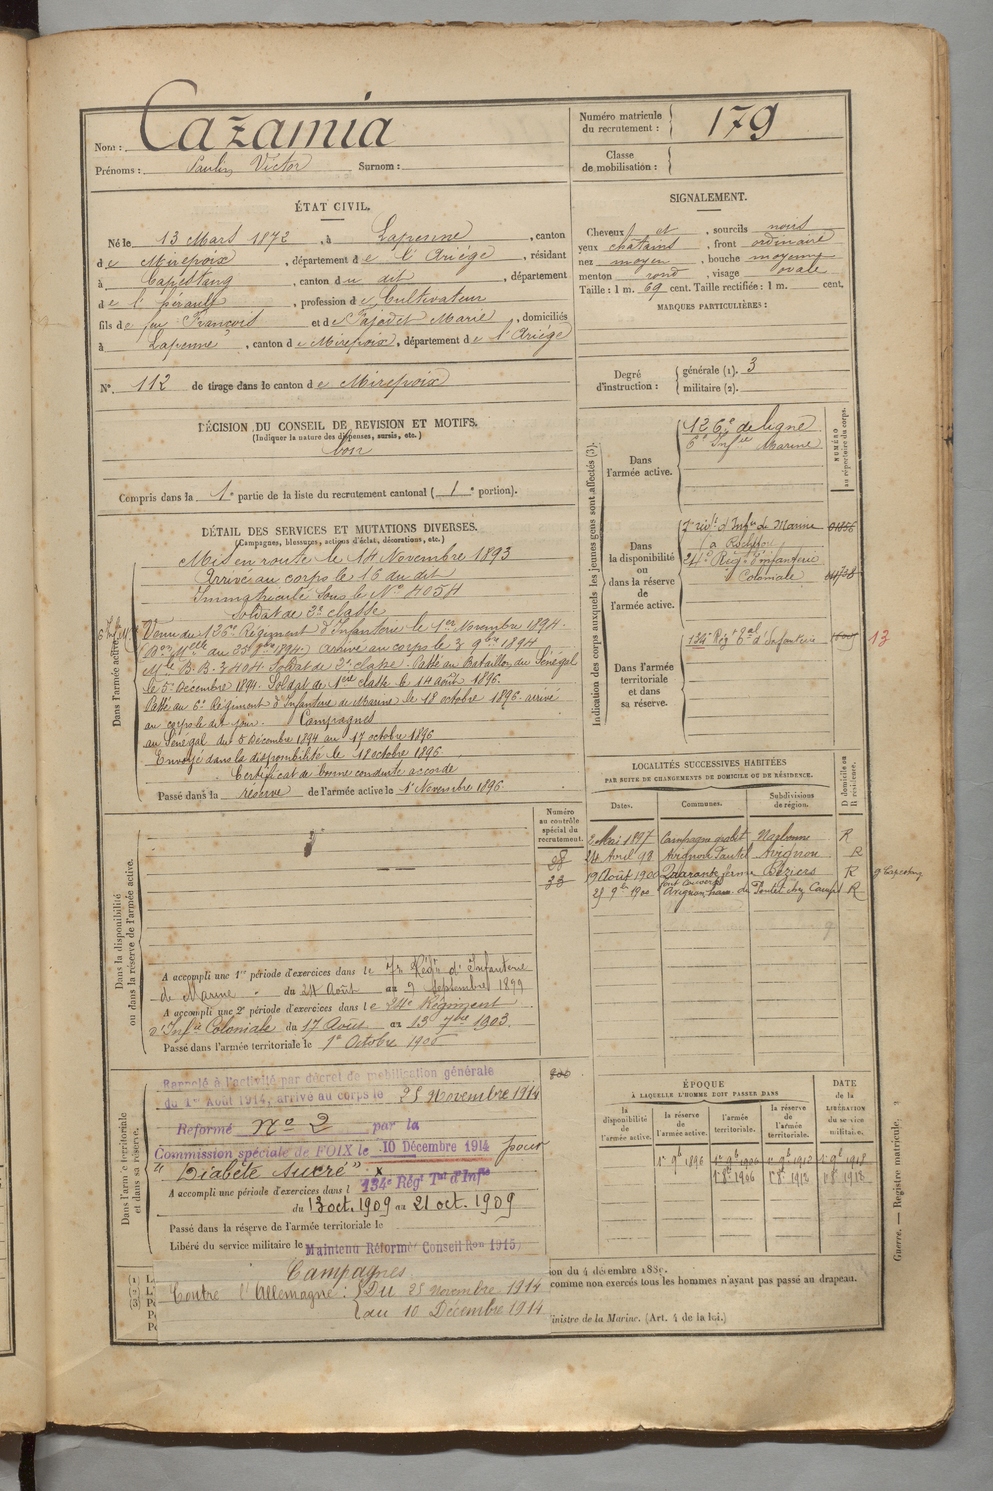 Nom : Cazamia
Prénoms : Paulin Victor Surnom :
Numéro matricule du recrutement : 179
Classe de mobilisation :
ÉTAT CIVIL.
Né le 13 Mars 1872, à Lapenne, canton
de Mirepoix, département de l'Ariége, résidant
à Capestang, canton du dit, département
de l'hérault, profession de Cultivateur
fils de feu François et de Pajodet Marie, domiciliés
à Lapenne, canton de Mirepoix, département de l'Ariége
N° 112 de tirage dans le canton de Mirepoix
DÉCISION DU CONSEIL DE REVISION ET MOTIFS.
(Indiquer la nature des dispenses, sursis, etc.)
bon
Compris dans la 1e partie de la liste du recrutement cantonal (1e portion).
SIGNALEMENT.
Cheveux et, sourcils noirs
yeux chatains, front ordinaire
nez moyen, bouche moyenne
menton rond, visage ovale
Taille : 1 m. 69 cent. Taille rectifiée : 1 m. cent.
MARQUES PARTICULIÈRES :
Degré d'instruction : générale (1). 3
militaire (2).
DÉTAIL DES SERVICES ET MUTATIONS DIVERSES.
(Campagnes, blessures, actions d'éclat, décorations, etc.)
Dans l'armée active.
Mis en route le 14 Novembre 1893
Arrivé au corps le 16 du dit
Immatriculé sous le N° 4054
Soldat de 2e classe
Venu du 126me Régiment d'Infanterie le 1er Novembre 1894.
(Don Melle du 23 9bre 1894) arrivé au corps le 3 9bre 1894
Mle B.B. 3404 Soldat de 2e classe. Passé au Bataillon du Sénégal
le 5 Décembre 1894. Soldat de 1ère classe le 14 août 1896.
Passé au 6e Régiment d'Infanterie de Marine le 18 octobre 1896. arrivé
au corps le dit jour. Campagnes
au Sénégal du 5 Décembre 1894 au 17 octobre 1896
Envoyé dans la disponibilité le 18 octobre 1896
Certificat de bonne conduite accordé
Passé dans la réserve de l'armée active le 1er Novembre 1896.
Indication des corps auxquels les jeunes gens sont affectés (3).
NUMÉRO au répertoire du corps.
Dans l'armée active.
126e de ligne
6e Infie Marine
Dans la disponibilité ou dans la réserve de l'armée active.
7e Régt d'Infie de Marine
(à Rochefort)
24e Régt d'infanterie
Coloniale
Dans l'armée territoriale et dans sa réserve.
134e Régt Tal d'Infanterie 13
Numéro au contrôle spécial du recrutement.
Dans la disponibilité ou dans la réserve de l'armée active.
A accompli une 1re période d'exercices dans le 7e Régt d'Infanterie
de Marine du 24 Août au 9 Septembre 1899
A accompli une 2e période d'exercices dans le 24e Régiment
d'Infie Coloniale du 17 Août au 13 7bre 1903.
Passé dans l'armée territoriale le 1er Octobre 1906
LOCALITÉS SUCCESSIVES HABITÉES
PAR SUITE DE CHANGEMENTS DE DOMICILE OU DE RÉSIDENCE.
Dates. Communes. Subdivisions de région. D domicile ou R résidence.
2 Mai 1897 Campagne Narbonne R
24 Avril 98 Avignon Avignon R
19 Août 1900 Quarante ferme Béziers R
25 9bre 1900 Avignon R
Dans l'armée territoriale et dans sa réserve.
Rappelé à l'activité par décret de mobilisation générale
du 1er Août 1914, arrivé au corps le 25 Novembre 1914
Réformé No 2 par la
Commission spéciale de FOIX le 10 Décembre 1914 pour
"Diabète Sucré". x
A accompli une période d'exercices dans l 134e Régt Tal d'Infie
du 13 oct. 1909 au 21 oct. 1909
Passé dans la réserve de l'armée territoriale le
Libéré du service militaire le Maintenu Réformé Conseil Ron 1915
ÉPOQUE À LAQUELLE L'HOMME DOIT PASSER DANS
la disponibilité de l'armée active. la réserve de l'armée active. l'armée territoriale. la réserve de l'armée territoriale.
DATE de la LIBÉRATION du service militaire.
1er 9b 1896 1er 9b 1906 1er 9b 1912 1er 9b 1918
1er 8b 1906 1er 8b 1912 1er 8b 1918
Campagnes
Contre l'Allemagne : Du 25 novembre 1914
au 10 Décembre 1914
ion du 4 décembre 188
comme non exercés tous les hommes n'ayant pas passé au drapeau.
inistre de la Marine. (Art. 4 de la loi.)
Guerre. — Registre matricule.